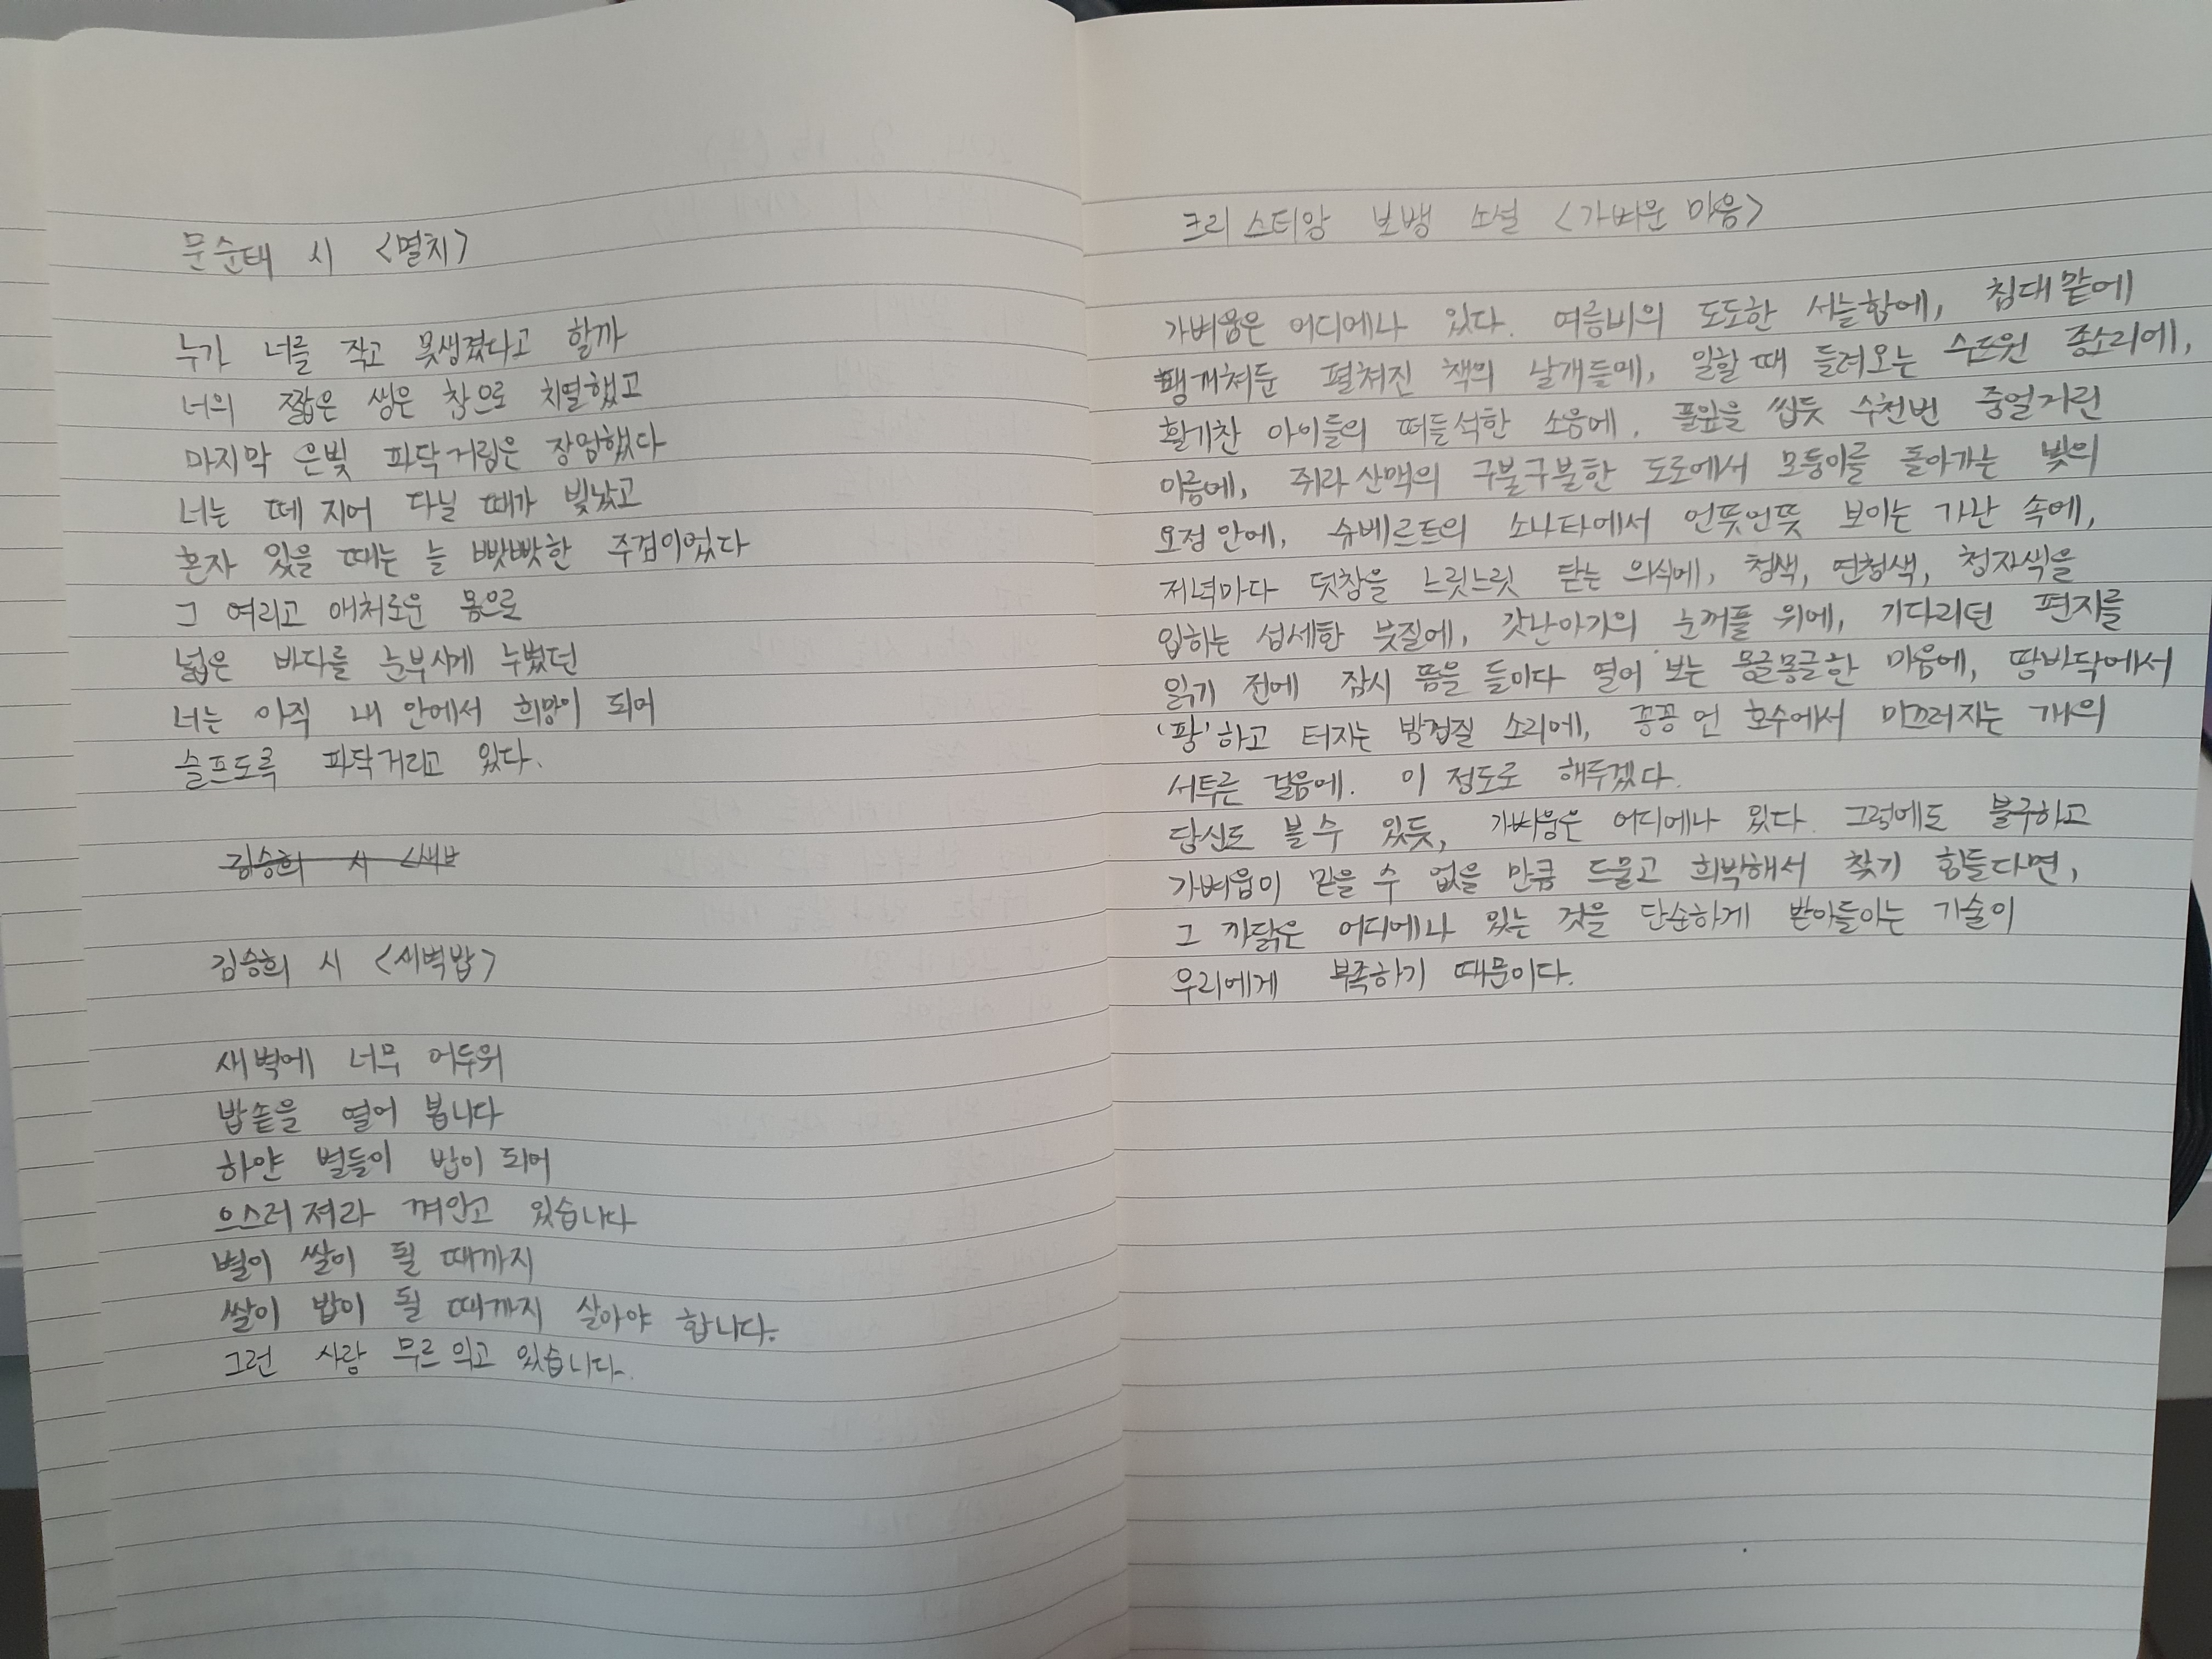 문순태 시 <멸치>
누가 너를 작고 못생겼다고 할까
너의 짧은 생은 참으로 치열했고
마지막 은빛 파닥거림은 장엄했다
너는 떼 지어 다닐 때가 빛났고
혼자 있을 때는 늘 빳빳한 주검이었다
그 여리고 애처로운 몸으로
넓은 바다를 눈부시게 누볐던
너는 아직 내 안에서 희망이 되어
슬프도록 파닥거리고 있다.
김승희 시 <새ㅂ
김승희 시 <새벽밥>
새벽에 너무 어두워
밥솥을 열어 봅니다
하얀 별들이 밥이 되어
으스러져라 껴안고 있습니다
별이 쌀이 될 때까지
쌀이 밥이 될 때까지 살아야 합니다.
그런 사랑 무르 익고 있습니다.
크리스티앙 보뱅 소설 <가벼운 마음>
가벼움은 어디에나 있다. 여름비의 도도한 서늘함에, 침대 맡에
팽개쳐둔 펼쳐진 책의 날개들에, 일할 때 들려오는 수도원 종소리에,
활기찬 아이들의 떠들석한 소음에, 풀잎을 씹듯 수천번 중얼거린
이름에, 쥐라 산맥의 구불구불한 도로에서 모퉁이를 돌아가는 빛의
요정 안에, 슈베르트의 소나타에서 언뜻언뜻 보이는 가난 속에,
저녁마다 덧창을 느릿느릿 닫는 의식에, 청색, 연청색, 청자색을
입히는 섬세한 붓질에, 갓난아기의 눈꺼풀 위에, 기다리던 편지를
읽기 전에 잠시 뜸을 들이다 열어 보는 몽글몽글한 마음에, 땅바닥에서
'팡'하고 터지는 밤껍질 소리에, 꽁꽁 언 호수에서 미끄러지는 개의
서투른 걸음에. 이 정도로 해두겠다.
당신도 볼 수 있듯, 가벼움은 어디에나 있다. 그럼에도 불구하고
가벼움이 믿을 수 없을 만큼 드물고 희박해서 찾기 힘들다면,
그 까닭은 어디에나 있는 것을 단순하게 받아들이는 기술이
우리에게 부족하기 때문이다.